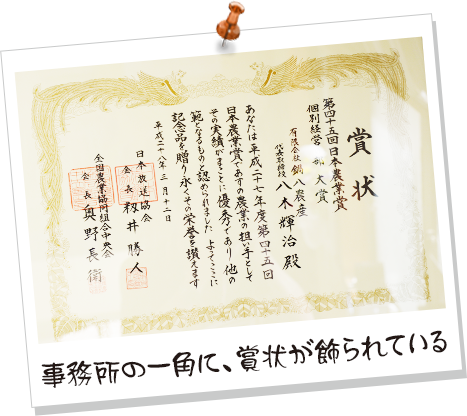 賞状
第四十五回日本農業賞
個別経営の部 大賞
有限会社 鍋八農産
代表取締役 八木輝治 殿
あなたは平成二十七年度第四十五回
日本農業賞であすの農業の担い手として
その実績がまことに優秀であり他の
範となるものと認められました よってここに
記念品を贈り永くその栄誉を讃えます
平成二十八年三月十二日
日本放送協会
会長 籾井勝人
全国農業協同組合中央会
会長 奥野長衛
事務所の一角に、賞状が飾られている